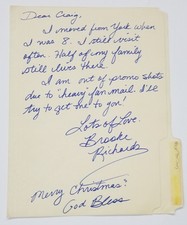 Dear Craig,
I moved from York when
I was 8. I still visit
often. Half of my family
still lives there.
I am out of promo shots
due to heavy fan mail. I'll
try to get one to you!
Lots of Love
Brooke
Richards
Merry Christmas!
God Bless